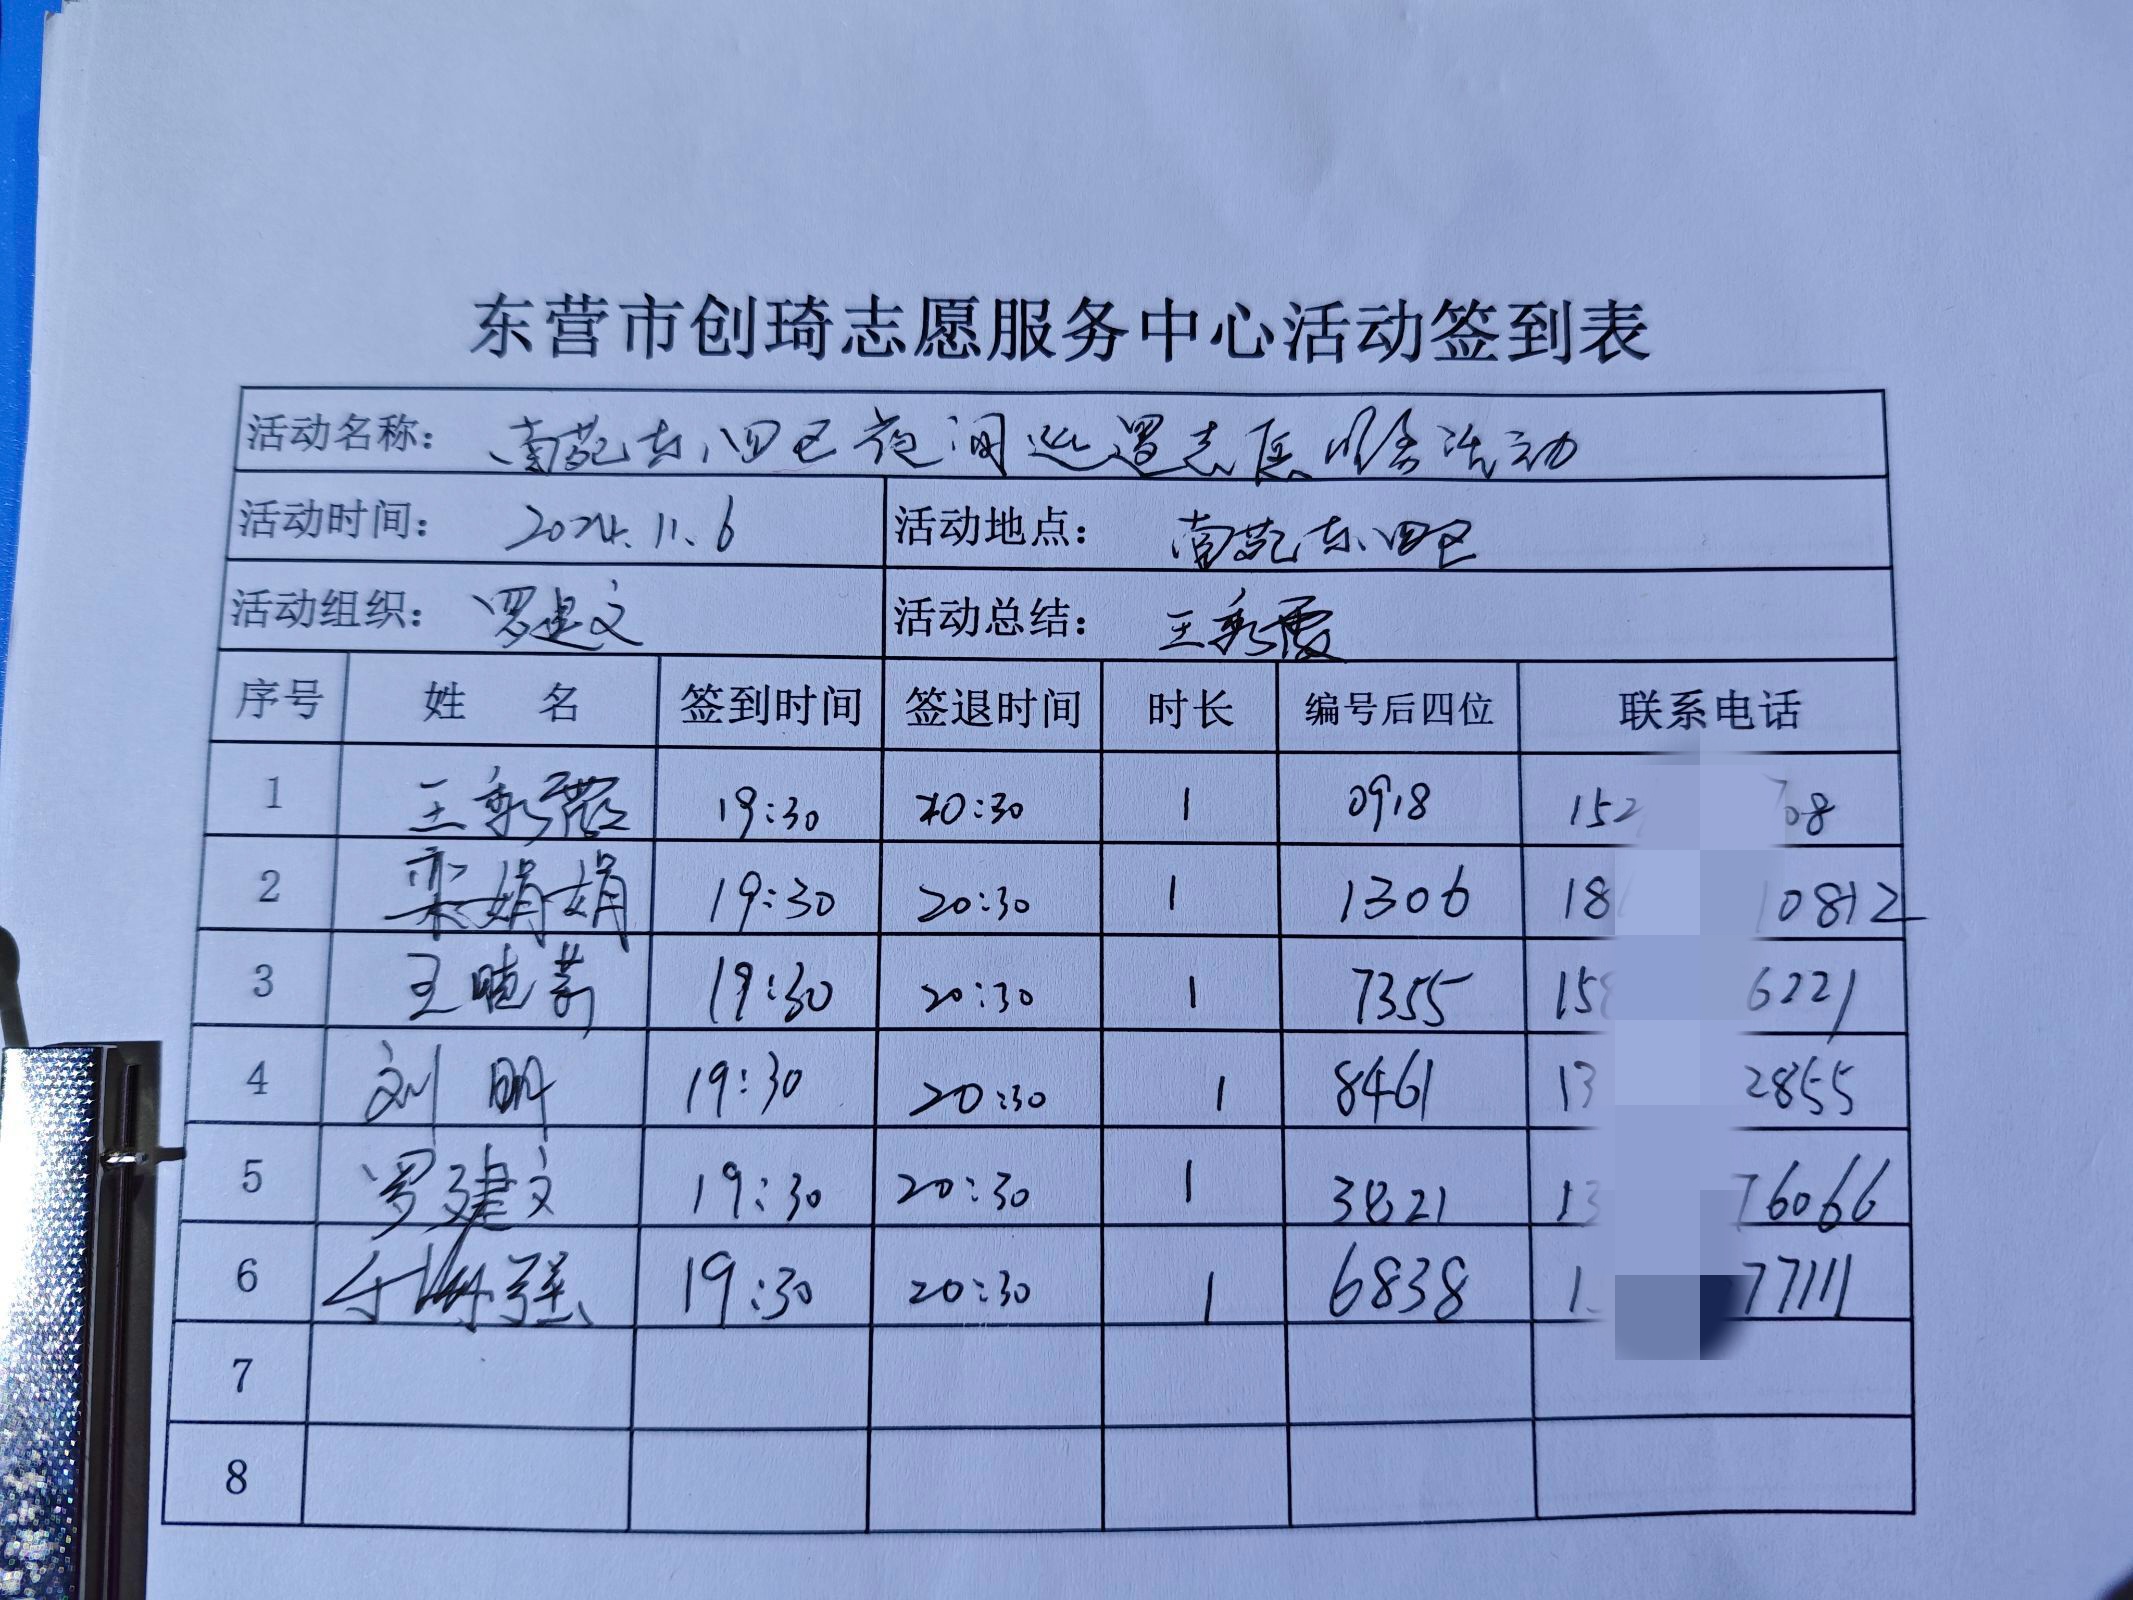 东营市创琦志愿服务中心活动签到表
活动名称： 南苑东四区夜间巡逻志愿服务活动
活动时间： 2024.11.6 活动地点： 南苑东四区
活动组织： 罗建文 活动总结： 王秀霞
序号 姓 名 签到时间 签退时间 时长 编号后四位 联系电话
1 王秀霞 19:30 20:30 1 0918 152 708
2 栾娟娟 19:30 20:30 1 1306 18 10812
3 王晓莉 19:30 20:30 1 7355 15 6221
4 刘 朋 19:30 20:30 1 8461 13 2855
5 罗建文 19:30 20:30 1 3821 13 76066
6 19:30 20:30 1 6838 1 77111
7
8